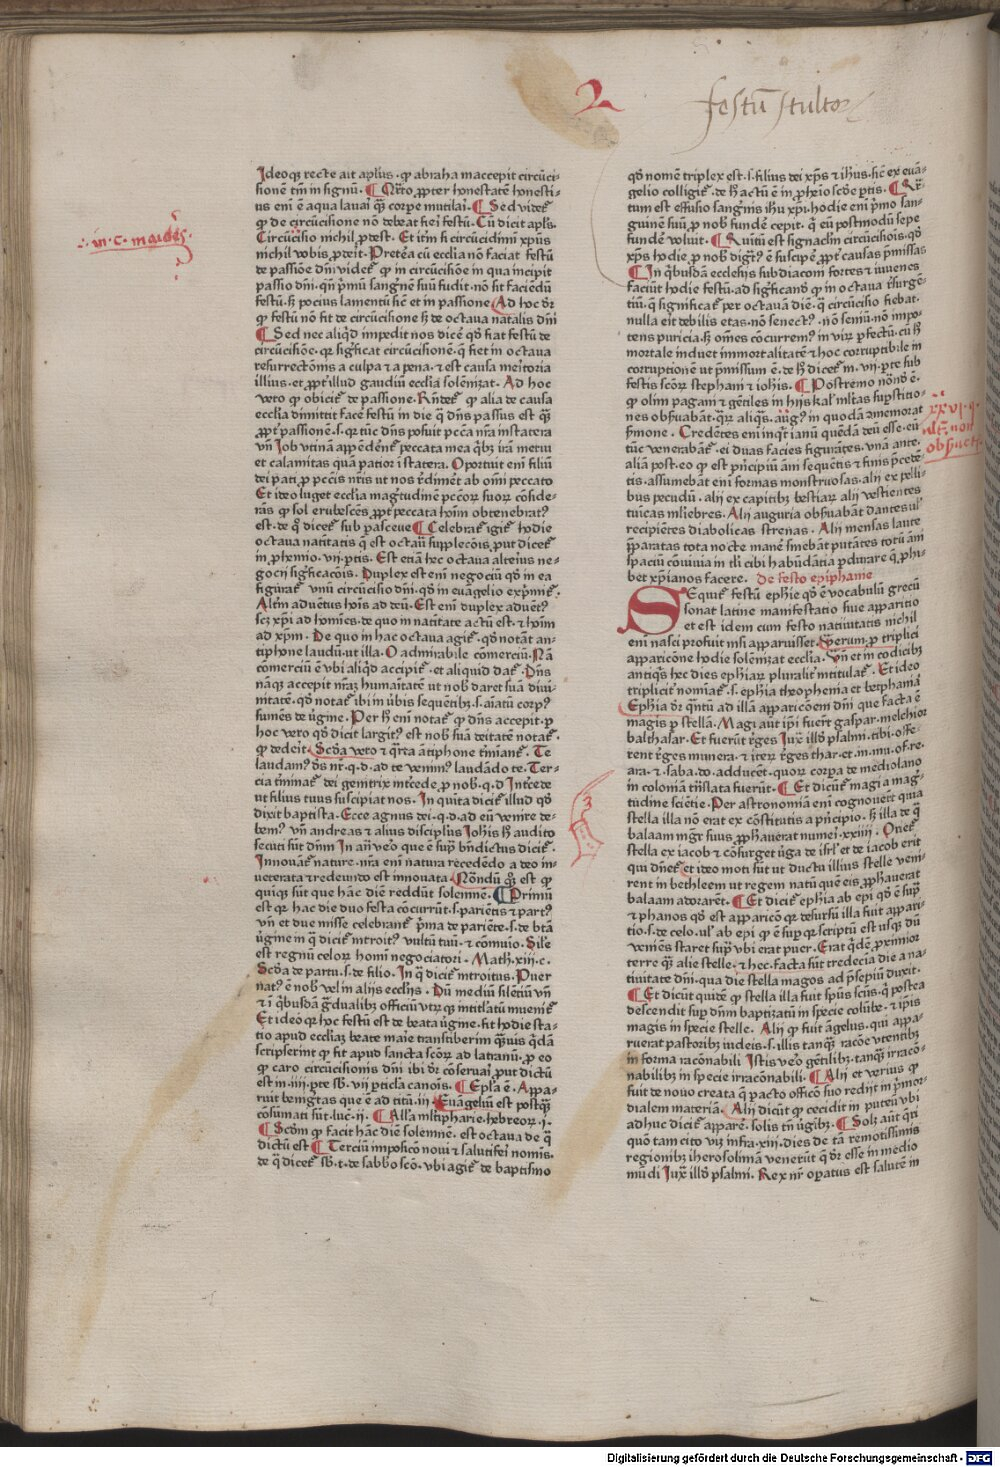 2
festū stultoꝝ
Ideoqꝫ recte ait apl'us · ꝙ abraha maccepit circūci-
sionē tm̄ in signū · ¶ Qrto ꝓpter honestatē honesti-
us eni ē a qua lauai qꝫ corpe mutilai · ¶ Sed videt̄
ꝙ de circūcisione nō debeat fieri festū · Cū dicit apl's
Circūcisio nichil ꝓdest · Et itm̄ si circūcidimi xp̄us
nichil vobis ꝓderit · Preterea cū ecclia nō faciat festū
de passiōe dn̄i videt̄ ꝙ in circūcisiōe in qua incipit
passio dn̄i · qn̄ pͥmū sangͥnē suū fudit · nō sit faciēdū
festū · sꝫ pocius lamentū sic et in passione Ad hoc dr̄
ꝙ festū nō fit de circūcisione sꝫ de octaua natalis dn̄i
¶ Sed nec aliqd impedit nos dicē qd fiat festū de
circūcisiōe · qꝛ sigficat circūcisionē · q fiet in octaua
resurrectōnis a culpa et a pena · et est causa meritoria
illius · et ꝓpt illud gaudiū ecclia solēnizat · Ad hoc
vero ꝙ obicit̄ de passione · Rn̄det̄ ꝙ alia de causa
ecclia dimittit facē festū in die q dn̄s passus est qꝫ
ꝓpt passionē · s · qꝛ tūc dn̄s posuit pcc̄a nr̄a in statera
vn̄ Iob vtinā appēderēt̄ peccata mea qbꝫ irā merui
et calamitas quā patior ī statera · Oportuit eni filiū
dei pati ꝓ pccīs nr̄is ut nos rͥdimet̄ ab omi peccato
Et ideo luget ecclia magͥtudinē pcc̄oꝝ suoꝝ cōside-
rās ꝙ sol erubescēs ꝓpt peccata hoim obtenebrat̄
est · de q dicet̄ sub pasceue ¶ Celebrat̄ igit̄ hodie
octaua natitatis q est octauū supplecōis put dicet̄
in ꝓhemio · vij · ptis · Est etiā hec octaua alterius ne-
gocij sigficacōis · Duplex est eni negociū qd in ea
figurat̄ vnū circūcisio dn̄i · qd in euāgelio expͥmit̄ ·
Altm̄ aduentus hoīs ad deū · Est eni duplex aduent̄
scꝫ xpi ad homīes · de quo in natitate actū est · et hoīm
ad xpm̄ · De quo in hac octaua agit̄ · qd notāt an-
tiphone laudiū · ut illa · O admirabile cōmerciū · Nā
comerciū ē vbi aliqd accipit̄ · et aliquid dat̄ · Dn̄s
nāqꝫ accepit nr̄aꝫ humaitatē ut nobis daret suā diui-
nitatē · qd notat̄ ibi in v̄bis sequētibꝫ · s · aīatū corpꝰ
sumēs de v̄gine · Per hͨ eni notat̄ ꝙ dn̄s accepit · p
hoc vero qd dicit largitꝰ est nob suā deitatē notat̄ ·
ꝙ dedeit · Scd̄a vero et qrta ātiphone tm̄iant̄ · Te
laudamꝰ ds̄ nr̄ · q · d · ad te venimꝰ laudādo te · Ter-
cia tm̄inat̄ dei genitrix int̄cede p nob · q · d · Int̄cede
ut filius tuus suscipiat nos · In quita dicit̄ illud qd
dixit baptista · Ecce agnus dei · q · d · ad eū venire de-
bemꝰ vn̄ andreas et alius discipulus Iohīs hͦ audito
secuti sūt dn̄m In añ v̄o que ē sup bn̄dictus dicit̄
Innouāt̄ nature · nr̄a eni natura recedēdo a deo in-
ueterata et redeundo est innouata · Nōndū qꝫ est ꝙ
quiqꝫ sūt que hāc diē reddūt solemnē · ¶ Primū
est qꝛ hac die duo festa cōcurrūt · s · pariētis et partꝰ
vn̄ et due misse celebrant̄ pͥma de pariēte · s · de btā
v̄gine in q dicit̄ introit̄ vultū tuū · et cōmunio · Sile
est regnū celoꝝ homi negociatori · Math · xiij · c ·
Scd̄a de partu · s · de filio · In q dicit̄ introitus · Puer
natꝰ ē nob vel in alijs eccliis · Dū mediū silētiū vn̄
et ī qbusdā gͣdualibꝫ officiū vtrqꝫ intitlatū inuenit̄
Et ideo qꝛ hoc festū est de beata v̄gine · fit hodie sta-
tio apud eccliaꝫ beate marie transtiberim quis qdā
scripserint ꝙ fit apud sancta scōꝝ ad latranū · p eo
ꝙ caro circūcisionis dn̄i ibi dr̄ cōseruai put dictū
est in · iiij · pte sb · vij pticla canois · ¶ Epl'a ē · Appa-
ruit benigtas que ē ad titū · iij · Euāgeliū est postqꝫ
cōsumati sūt · luc · ij · ¶ All'a mltipharie · hebreoꝝ · j ·
¶ Scd̄m ꝙ facit hāc diē solemnē · est octaua de q
dictū est ¶ Terciū impositio noui et salutiferi nomīs ·
de q dicet̄ sb · t · de sabbo scō · vbi agit̄ de baptismo
qd nomē triplex est · s · filius dei xp̄s et ihūs · sic ē ex euā-
gelio colligit̄ · de hͨ actū ē in ꝓhemio scd̄e ptis · ¶ Qr-
tum est effusio sangͥnis ihū xpi · hodie eni pͥmo san-
guinē suū p nob fundē cepit · q eū postmodū sepe
fundē voluit · ¶ Quitū est signaclm̄ circūcisiōis · qd
xp̄s hodie p nob digtꝰ ē suscipe ꝓpt causas pͥmissas
¶ In qbusdā ecclesijs subdiaconi fortes et iuuenes
faciūt hodie festū · ad sigficandū ꝙ in octaua rͥsurgē-
tiū · q significat̄ per octauā diē · q circūcisio fiebat ·
nulla erit debilis etas · nō senectꝰ · nō seniū · nō impo-
tens puricia · sꝫ omēs cōcurremꝰ in virū ꝑfectū · cū hͨ
mortale induet immortalitatē et hoc corruptibile in
corruptionē ut pͥmissum ē · de hͨ dicet̄ in · vij · pte sub
festis scōꝝ stephani et iohis · ¶ Postremo nōnd ē ·
ꝙ olim pagani et gētiles in hijs kal' mltas supstitio-
nes obseruabāt · qꝛ aliqs · augꝰ in quodā ɔmemorat
sermone · Credētes eni inqt ianū quēdā deū esse · eū
tūc venerabāt̄ · ei duas facies figurātes · vnā ante ·
aliā post · eo ꝙ est pͥncipiū āni sequētis et finis pͥcedē-
tis · assumebāt eni formas monstruosas · alij ex pelli-
bus pecudū · alij ex capitibꝫ bestiaꝝ alij vestientes
tunicas mliebres · Alij auguria obseruabāt dantes ul'
recipiētes diabolicas strenas · Alij mensas laute
pͥparatas tota nocte manē sinebāt putātes totū āni
spaciū cōuiuia in tli cibi habūdātia pdurare q ꝓhi-
bet xpianos facere · de festo epiphanie
SEquit̄ festū ephie qd ē vocabulū grecū
sonat latine manifestatio siue apparitio
et est idem cum festo natiuitatis nichil
eni nasci profuit nisi apparuisset · Verum p triplici
apparicōne hodie solēnizat ecclia · Vn̄ et in codicibꝫ
antiqs hec dies ephiaꝝ pluralit̄ intitulat̄ · Et ideo
triplicit̄ nomiat̄ · s · ephia theophenia et bethphania
Ephia dr̄ qntū ad illā apparicōem dn̄i que facta ē
magis p stellā · Magi aut ipi fuert̄ gaspar · melchior
balthasar · Et fuerūt rͥges Iux̄ illd psalmi · tibi offe-
rent rͥges munera · et iterꝝ rͥges thar · et · in · mu · of · re ·
ara · et · saba · do · adducēt · quoꝝ corpa de mediolano
in coloniā trāslata fuerūt · ¶ Et dicūt̄ magi a magͥ-
tudine sciētie · Per astronomiā eni cognouert̄ quia
stella illa nō erat ex cōstitutis a pͥncipio · sꝫ illa de q
balaam mgr̄ suus ꝓphauerat numei · xxiiij · Oriet̄
stella ex iacob et cōsurget v̄ga de isrl' et de iacob erit
qui dn̄et̄ et ideo moti sūt ut ductu illius stelle veni-
rent in bethleem ut regem natū quē eis ꝓphauerat
balaam adorarēt · ¶ Et dicit̄ ephia ab epi qd ē supͣ
et phanos qd est apparicō qꝛ desursū illa fuit appari-
tio · s · de celo · ul' ab epi ꝙ ē supͣ qꝛ scriptū est usqꝫ dū
veniēs staret supͣ vbi erat puer · Erat qdē ꝓximior
terre qꝫ alie stelle · et hec facta sūt tredecia die a na-
tiuitate dn̄i · qua die stella magos ad pͥsepiū duxit ·
¶ Et dicūt quidē ꝙ stella illa fuit spūs scūs · q postea
descendit sup dn̄m baptizatū in specie colūbe · et ipis
magis in specie stelle · Alij ꝙ fuit āgelus · qui appa-
ruerat pastoribꝫ iudeis · s · illis tanqꝫ racōe vtentibꝫ
in forma racōnabili Istis v̄o gētilibꝫ · tanqꝫ irracō-
nabilibꝫ in specie irracōnabili · ¶ Alij et verius ꝙ
fuit de nouo creata q pacto officō suo redijt in pͥmor-
dialem materiā · Alij dicūt ꝙ cecidit in puteū vbi
adhuc dicit̄ apparē · solis tn̄ v̄gibꝫ · ¶ Solꝫ aut qri
quō tam cito viꝫ infra · xiij · dies de tā remotissimis
regionibꝫ iherosolimā venerūt q dr̄ esse in medio
mūdi Iux̄ illd psalmi · Rex nr̄ opatus est salutē in
Digitalisierung gefördert durch die Deutsche Forschungsgemeinschaft - DFG